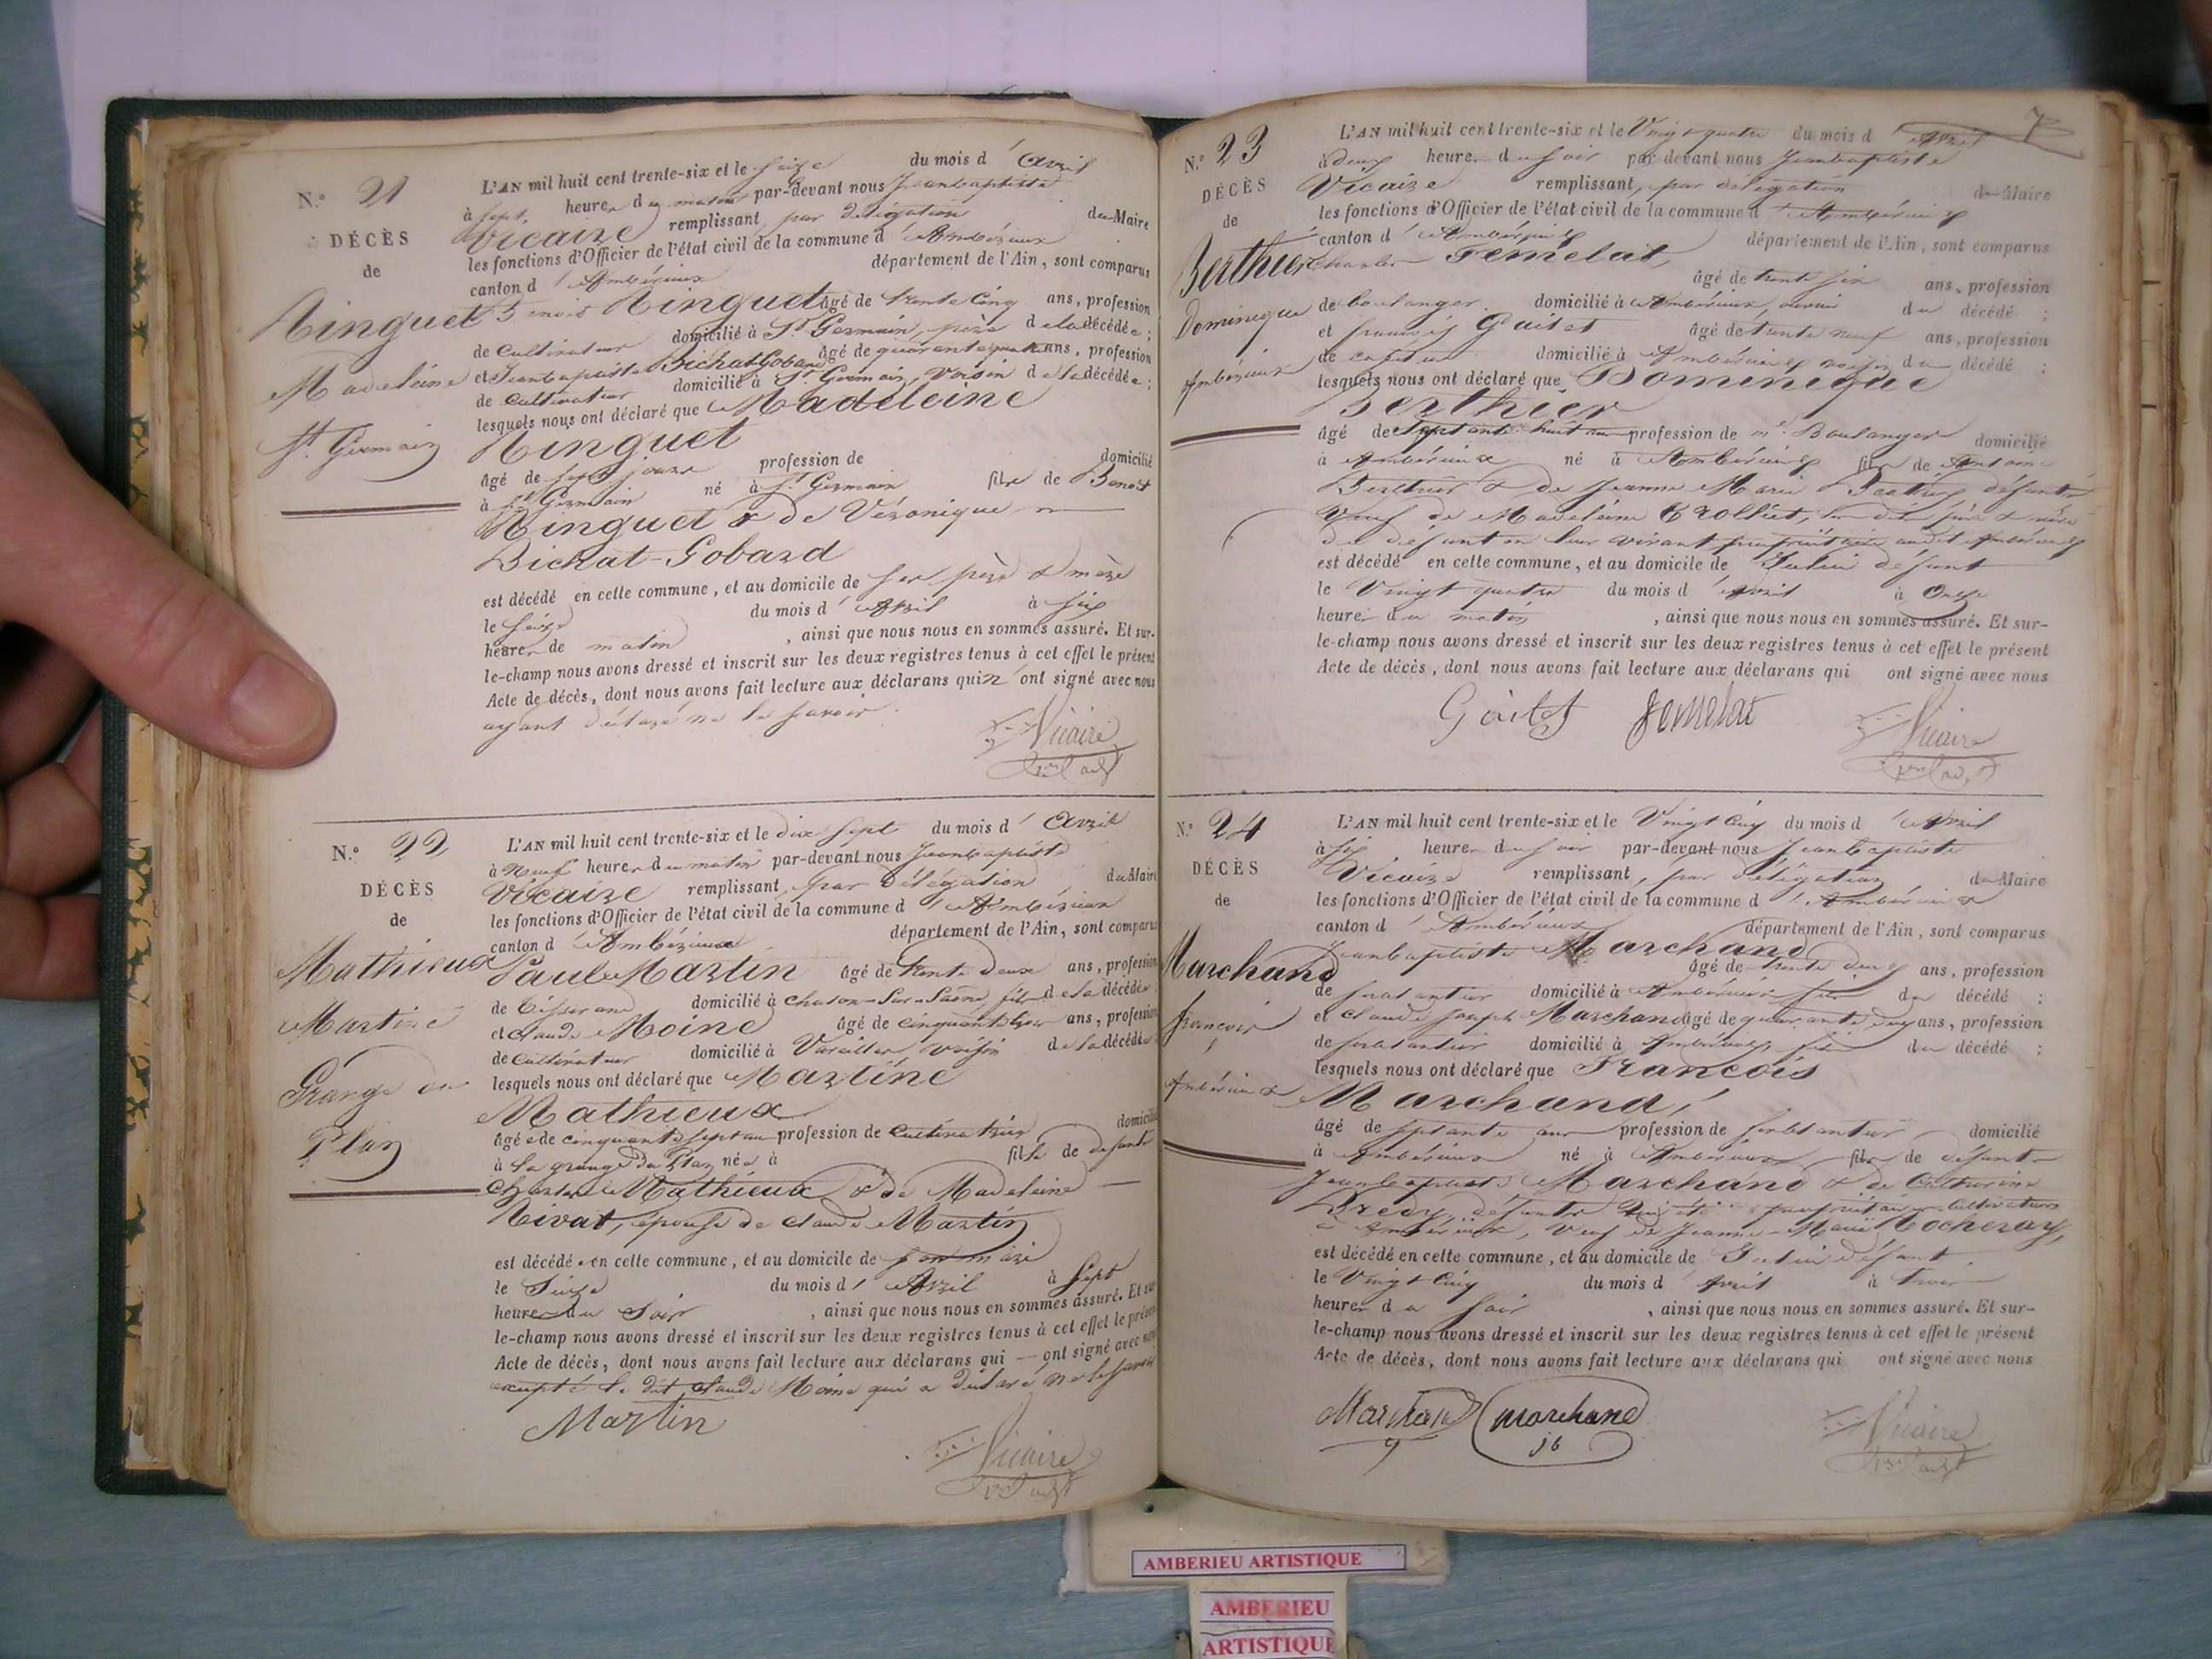 N.° 21
DÉCÈS
de
Ninguet
Madeleine
St. Germain
L'AN mil huit cent trente-six et le seize du mois d'avril
à sept heures du matin par-devant nous Jeanbaptiste
Vicaire remplissant par délégation du Maire
les fonctions d'Officier de l'état civil de la commune d'Ambérieux
canton d'Ambérieux département de l'Ain, sont comparus
Ninguet âgé de trente cinq ans, profession
de cultivateur domicilié à St Germain, père de la décédée;
et Jeanbaptiste Bichat Gobard âgé de quarante quatre ans, profession
de cultivateur domicilié à St Germain, voisin de la décédée;
lesquels nous ont déclaré que Madeleine
Ninguet
âgé de sept jours profession de domicilié
à St Germain né à St Germain fille de Benoit
Ninguet & de Véronique
Bichat-Gobard
est décédé en cette commune, et au domicile de ses père & mère
le seize du mois d'avril à six
heures de matin, ainsi que nous nous en sommes assuré. Et sur-
le-champ nous avons dressé et inscrit sur les deux registres tenus à cet effet le présent
Acte de décès, dont nous avons fait lecture aux déclarans qui n'ont signé avec nous
ayant déclaré ne le savoir.
Vicaire
N.° 22
DÉCÈS
de
Mathieux
Martine
Grange du
Plan
L'AN mil huit cent trente-six et le dix sept du mois d'avril
à neuf heures du matin par-devant nous Jeanbaptiste
Vicaire remplissant par délégation du Maire
les fonctions d'Officier de l'état civil de la commune d'Ambérieux
canton d'Ambérieux département de l'Ain, sont comparus
Paul Martin âgé de trente deux ans, profession
de tisserand domicilié à Chalon-Sur-Saône, fils de la décédée
et Claude Moine âgé de cinquante ans, profession
de cultivateur domicilié à Vareilles voisin de la décédée
lesquels nous ont déclaré que Martine
Mathieux
âgée de cinquante sept ans profession de cultivatrice domicilié
à la grange du Plan née à fille de défunts
Charles Mathieux & de Madeleine
Nivat, épouse de Claude Martin
est décédée en cette commune, et au domicile de son mari
le seize du mois d'avril à sept
heures du soir, ainsi que nous nous en sommes assuré. Et sur
le-champ nous avons dressé et inscrit sur les deux registres tenus à cet effet le présent
Acte de décès, dont nous avons fait lecture aux déclarans qui — ont signé avec nous
excepté le dit Claude Moine qui a déclaré ne le savoir
Martin
Vicaire
7
N.° 23
DÉCÈS
de
Berthier
Dominique
Ambérieux
L'AN mil huit cent trente-six et le vingt quatre du mois d'avril
à deux heures du soir par-devant nous Jeanbaptiste
Vicaire remplissant, par délégation du Maire
les fonctions d'Officier de l'état civil de la commune d'Ambérieux
canton d'Ambérieux département de l'Ain, sont comparus
Charles Femelat, âgé de trente six ans, profession
de boulanger domicilié à Ambérieux, du décédé;
et françois Guitet âgé de trente neuf ans, profession
de domicilié à Ambérieux voisin du décédé;
lesquels nous ont déclaré que Dominique
Berthier
âgé de septante huit ans profession de md. Boulanger domicilié
à Ambérieux né à Ambérieux fils de Antoine
Berthier & de Jeanne Marie défunts
veuf de Madeleine
est décédé en cette commune, et au domicile de défunt
le vingt quatre du mois d'avril à onze
heures du matin, ainsi que nous nous en sommes assuré. Et sur-
le-champ nous avons dressé et inscrit sur les deux registres tenus à cet effet le présent
Acte de décès, dont nous avons fait lecture aux déclarans qui ont signé avec nous
Goitet femelat
Vicaire
N.° 24
DÉCÈS
de
Marchand
françois
Ambérieux
L'AN mil huit cent trente-six et le vingt cinq du mois d'avril
à six heures du soir par-devant nous Jeanbaptiste
Vicaire remplissant, par délégation du Maire
les fonctions d'Officier de l'état civil de la commune d'Ambérieux
canton d'Ambérieux département de l'Ain, sont comparus
Jeanbaptiste Marchand
âgé de trente deux ans, profession
de ferblantier domicilié à Ambérieux fils du décédé;
et Claude Joseph Marchand âgé de quarante deux ans, profession
de ferblantier domicilié à Ambérieux fils du décédé;
lesquels nous ont déclaré que François
Marchand,
âgé de septante ans profession de ferblantier domicilié
à Ambérieux né à Ambérieux fils de défunts
Jeanbaptiste Marchand & de Catherine
Bredy, défunts
à Ambérieux, veuf de Jeanne-Marie Rocheray,
est décédé en cette commune, et au domicile de défunt
le vingt cinq du mois d'avril à trois
heures du soir, ainsi que nous nous en sommes assuré. Et sur-
le-champ nous avons dressé et inscrit sur les deux registres tenus à cet effet le présent
Acte de décès, dont nous avons fait lecture aux déclarans qui ont signé avec nous
Marchand marchand
Vicaire
AMBERIEU ARTISTIQUE
AMBERIEU
ARTISTIQUE